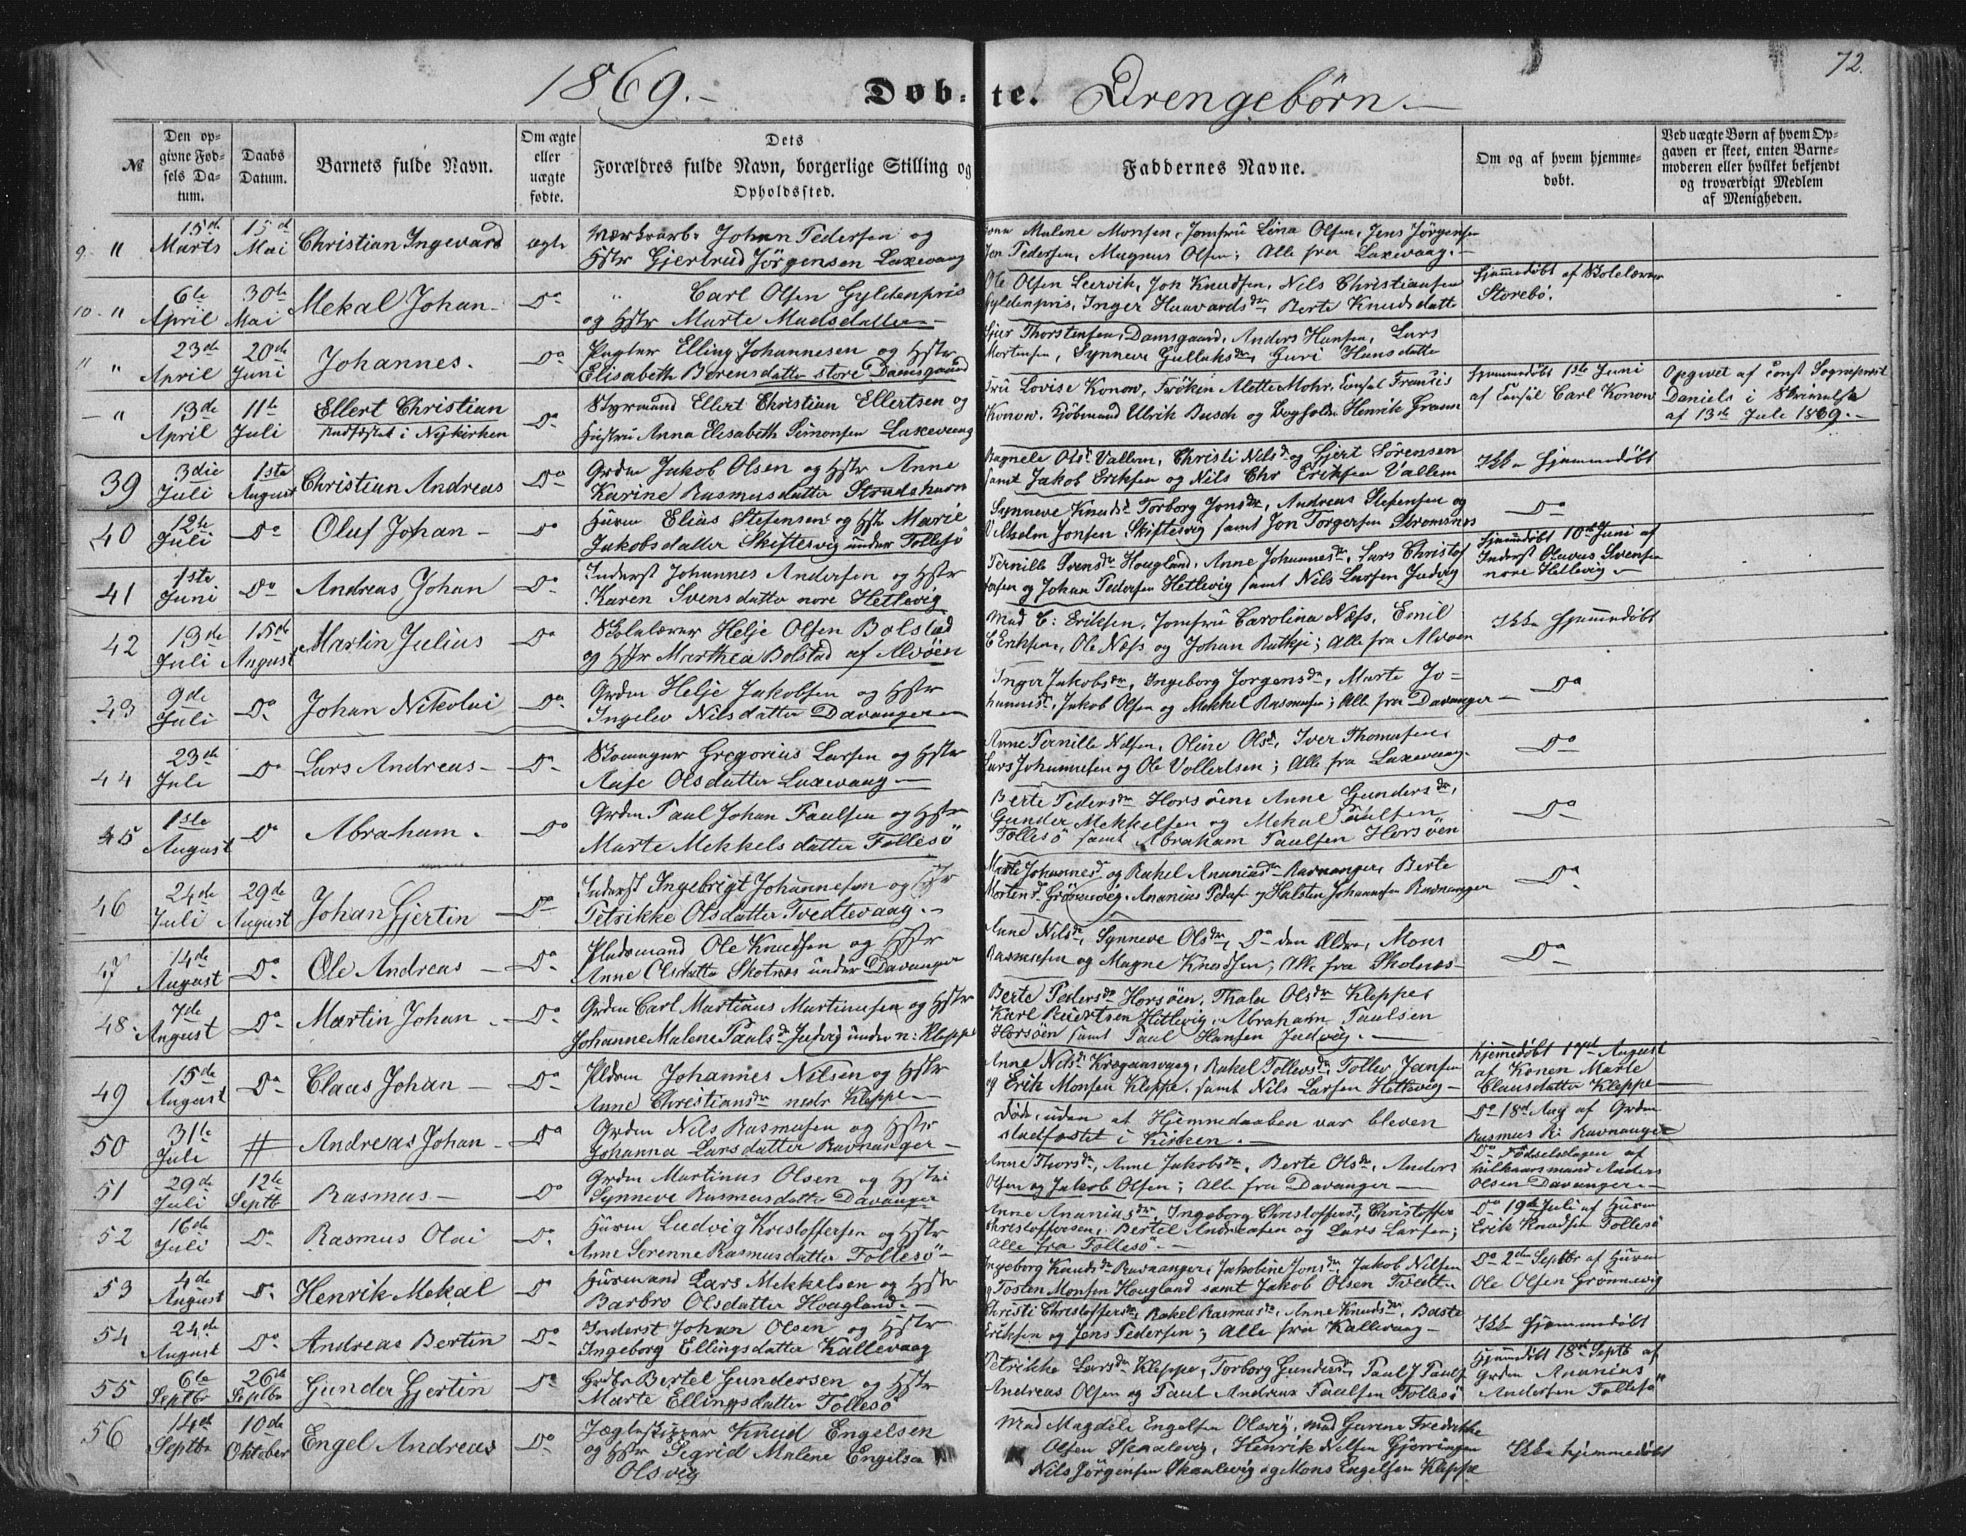 1869.- Døb-te. Drengebørn.-
72.
№
Den opgivne Fødsels Datum.
Daabs Datum.
Barnets fulde Navn.
Om ægte eller uægte fødte.
Dets Forældres fulde Navn, borgerlige Stilling og Opholdssted.
Faddernes Navne.
Om og af hvem hjemmedøbt.
Ved uægte Børn af hvem Opgaven er skeet, enten Barnemoderen eller hvilket bekjendt og troværdigt Medlem af Menigheden.
9. " 15de Marts 15de Mai Christian Ingevard ægte Johan Pedersen og
Hstr Gjertrud Jörgensen Laxevaag
Malene Monsen, Jomfru Lina Olsen, Jens Jörgensen
Jon Pedersen, Magnus Olsen; Alle fra Laxevaag.-
10. " 6te April 30te Mai Mekal Johan- Do " Carl Olsen Gyldenpris
og Hstr Marte Madsdatter
Ole Olsen Leervik, Jon Knudsen, Nils Christiansen
Gyldenpris, Inger Haavardsdr, Berte Knudsdatter
Hjemmedöbt af Skolelærer
Storebö.
" " 23de April 20de Juni Johannes. Do Elling Johannesen og Hstr
Elisabeth Berensdatter store Damsgaard
Sjur Thorstensen, Damsgaard, Anders Hansen, Lars
Mortensen, Synneve Gullaksdr, Guri Hansdatter
— " 13de April 11te Juli Ellert Christian
Stadfæstet i Nykirken
Do Styrmand Ellert Christian Ellertsen og
Hustru Anna Elisabeth Simonsen Laxevaag
Fru Lovise Konow, Fröken Alette Mohr, Consul Francis
Konow, Kjöbmand Ulrik Busch og Bogholder Henrik
Hjemmedöbt 1ste Juni
af Consul Carl Konow
Opgivet af Const Sogneprest
Daniels i
af 13de Juli 1869.-
39 3die Juli 1ste August Christian Andreas Do Grdm Jakob Olsen og Hstr Anne
Karine Rasmusdatter Strudshavn
Ragnele Olsdr Vallem, Christi Nilsdr og Gjert Sörensen
samt Jakob Eriksen og Nils Chr Eriksen Vallem
Ikke Hjemmedöbt
40 12te Juli Do Oluf Johan- Do Huusm Elias Stefensen og Hstr Marie
Jakobsdatter Skiftesvig under Follesö
Synneve Knudsdr Torborg Jonsdr, Andreas Stefensen og
Vilhelm Jonsen Skiftesvig samt Jon Torgersen Stromsnes
Do
41 1ste Juni Do Andreas Johan Do Inderst Johannes Andersen og Hstr
Karen Svensdatter nore Hetlevig
Pernille Svensdr Hougland, Anne Johannesdr, Lars Christof
fersen og Johan Pedersen Hetlevig samt Nils Larsen Judvig
Hjemmedöbt 10de Juni af
Inderst Olavus Svensen
nore Hetlevig-
42 19de Juli 15de August Martin Julius Do Skolelærer Helje Olsen Bolstad
og Hstr Marthea Bolstad af Alvöen
Mad C: Eriksen, Jomfru Carolina Næss, Emil
C Eriksen, Ole Næss og Johan Rutkje; Alle fra Alvöen
Ikke Hjemmedöbt
43 9de Juli Do Johan Nikolai Do Grdm Helje Jakobsen og Hstr
Ingelev Nilsdatter Davanger-
Inger Jakobsdr, Ingeborg Jorgensdr, Marte Jo-
hannesdr, Jakob Olsen og Mekkel Rasmusen; Alle fra Davanger-
Do
44 23de Juli Do Lars Andreas- Do Gregorius Larsen og Hstr
Aase Olsdatter Laxevaag.-
Anne Pernille Nelsen, Oline Olsdr, Iver Thomasen,
Lars Johannesen og Ole Vollertsen; Alle fra Laxevaag.
Do
45 1ste August Do Abraham. Do Grdm Paul Johan Paulsen og Hstr
Marte Mekkelsdatter Follesö
Berte Pedersdr Horsöen Anne Gundersdr,
Gunder Mekkelsen og Mekal Paulsen
Follesö samt Abraham Paulsen Horsöen
Do
46 24de Juli 29de August Johan Gjertin Do Inderst Ingebrigt Johannesen og Hstr
Petrikke Olsdatter Tvedtevaag.-
Marte Johannesdr og Rakel Ananiasdr Ravnanger, Berte
Mortensdr Grönnevig, Ananias Peders og Halsten Johannesen Ravnanger
Do
47 14de August Do Ole Andreas- Do Pladsmand Ole Knudsen og Hstr
Anne Olsdatter Skotnes under Davanger
Anne Nilsdr, Synneve Olsdr, Do den Ældre, Mons
Rasmusen og Magne Knudsen; Alle fra Skotnes-
Do
48. 7de August Do Martin Johan. Do Grdm Carl Martinus Martinusen og Hstr
Johanne Malene Paulsdr Judvig under n: Kleppe
Berte Pedersdr Horsöen, Thala Olsdr Kleppe,
Karl Hetlevig, Abraham Paulsen
Horsöen samt Paul Hansen Judvig.-
49 15de August Do Claus Johan- Do Pldsm Johannes Nilsen og Hstr
Anne Christiansdr nedr Kleppe-
Anne Nilsdr Krogansvaag, Rakel Tollevsdr, Tollev Jensen
og Erik Monsen Kleppe, samt Nils Larsen Hetlevig-
Hjemmedöbt 17de August
af Konen Marte
Clausdatter Kleppe-
50 31te Juli # Andreas Johan- Do Grdm Nils Rasmusen og Hstr
Johanna Larsdatter Ravnanger-
Döde uden at Hjemmedaaben var bleven
stadfæstet i Kirken.-
Do 18de Aug af Grdm
Rasmus R: Ravnanger
51 29de Juli 12te Septb Rasmus- Do Grdm Martinus Olsen og Hstr
Synneve Rasmusdatter Davanger
Anne Thorsdr, Anne Jakobsdr, Berte Olsdr, Anders
Olsen og Jakob Olsen; Alle fra Davanger-
Do Födselsdagen af
Kilkaarsmand Anders
Olsen Davanger-
52 16de Juli Do Rasmus Olai Do Huusm Ludvig Kristoffersen og Hstr
Anne Serenne Rasmusdatter Follesö-
Anne Ananiasdr, Ingeborg Christoffersdr, Christoffer
Christoffersen, Bertel Andreasen og Lars Larsen;
Alle fra Follesö.-
Do 19de Juli af Huusm
Erik Knudsen Follesö
53 4de August Do Henrik Mekal Do Huusmand Lars Mekkelsen og Hstr
Barbro Olsdatter Hougland.-
Ingeborg Knudsdr Ravnanger, Jakobine Jonsdr, Jakob Nilsen
og Tosten Monsen Hougland samt Jakob Olsen Tvedt
Do 2den Septbr af Huusm
Ole Olsen Grönnevig
54 24de August Do Andreas Bertin Do Inderst Johan Olsen og Hstr
Ingeborg Ellingsdatter Kallevaag
Christi Christoffersdr, Rakel Rasmusdr, Anne Knudsdr, Baste
Eriksen og Jens Pedersen; Alle fra Kallevaag-
Ikke Hjemmedöbt
55 6te Septbr 26de Septbr Gunder Gjertin Do Bertel Gundersen og Hstr
Marte Ellingsdatter Follesö
Petrikke Larsdr Kleppe, Torborg Gundersdr, Paul J Pauls
Andreas Olsen og Paul Andreas Paulsen Follesö
Hjemmedöbt 18de Septb af
Grdm Ananias
Andersen Follesö
56 14de Septbr 10de Oktober Engel Andreas Do Jægteskipper Knud Engelsen
og Hstr Sigrid Malene Engelsen
Olsvig
Mad Magdele Engelsen Olsvig, mad Gurine Fredrikke
Olsen Skaalevig, Henrik Nilsen Gjerringen
Nils Jörgensen Skaalevig og Mons Engelsen Kleppe
Ikke hjemmedöbt